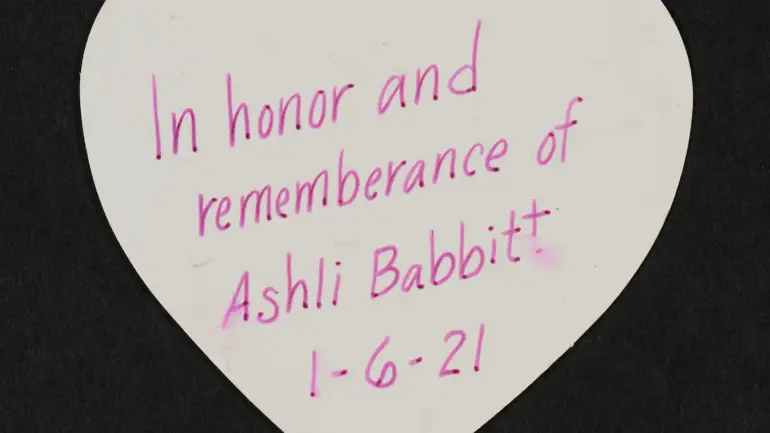 In honor and
rememberance of
Ashli Babbitt
1-6-21